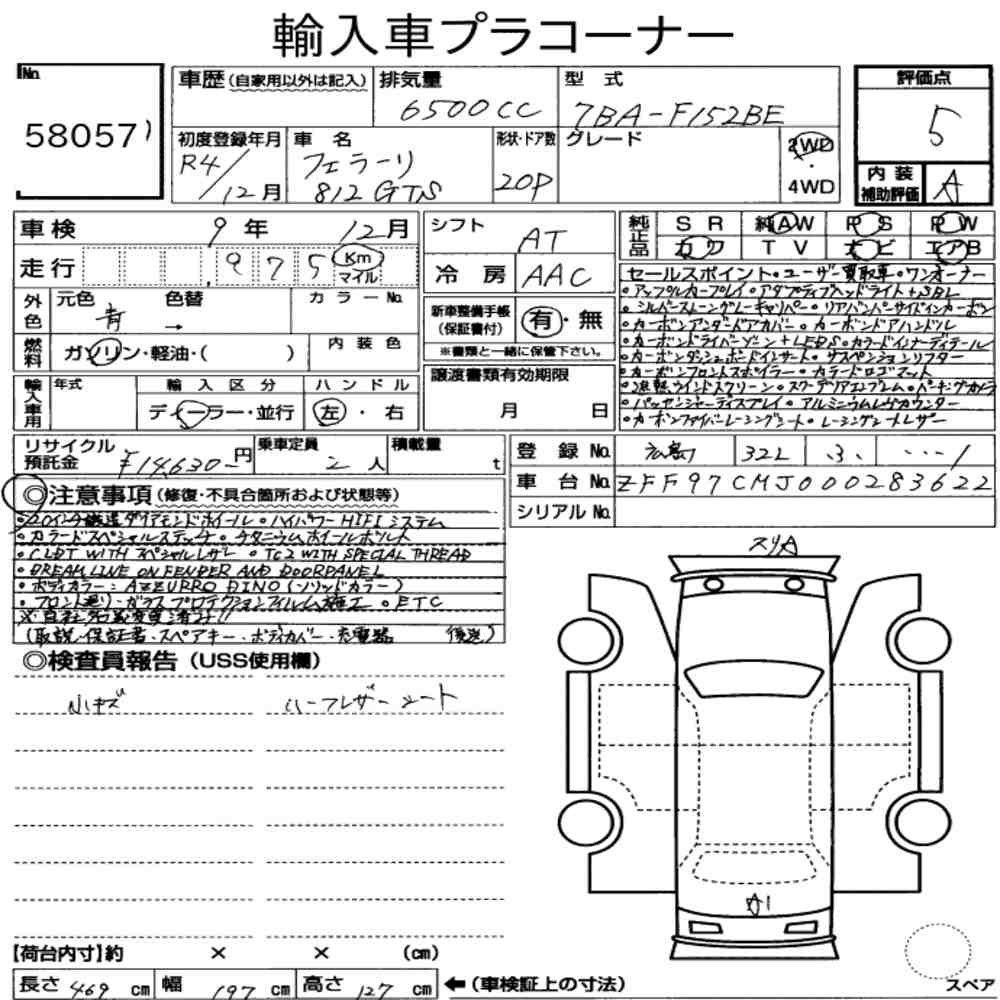 輸入車プラコーナー
No.
58057
車歴(自家用以外は記入)
排気量
6500CC
型 式
7BA-F152BE
評価点
5
内装
補助評価
A
初度登録年月
R4/12月
車 名
フェラーリ
812 GTS
形状・ドア数
2OP
グレード
2WD
・
4WD
車検 9年 12月
走行 975 Km
マイル
シフト
AT
冷 房
AAC
新車整備手帳
(保証書付)
有・無
※書類と一緒に保管下さい。
純正品
SR 純AW PS PW
カワ TV ナビ エアB
外色
元色 青
→
色替
カラーNo.
燃料
ガソリン・軽油・( )
内 装 色
輸入車用
年式
輸入区分
ディーラー・並行
ハンドル
左・右
譲渡書類有効期限
月 日
セールスポイント・ユーザー買取車・ワンオーナー
・アップルカープレイ・アダプティブヘッドライト+SBL
・シルバーストーングレーキャリパー・リアバンパーサイドインカーボン
・カーボンアンダードアカバー・カーボンドアハンドル
・カーボンドライバーゾーン+LEDS・カラードインナーディテール
・カーボンダッシュボードインサート・サスペンションリフター
・カーボンフロントスポイラー・カラードロゴマット
・遮熱ウインドスクリーン・スクーデリアエンブレム・パーキングカメラ
・パッセンジャーディスプレイ・アルミニウムレヴカウンター
・カーボンファイバーレーシングシート・レーシングシートレザー
リサイクル
預託金 ¥14,630 円
乗車定員
2人
積載量
t
登 録 No. 広島 322 ・3・ ・・・1
車 台 No. ZFF97CMJ000283622
シリアルNo.
◎注意事項(修復・不具合箇所および状態等)
・20インチ鍛造ダイアモンドホイール・ハイパワーHIFIシステム
・カラードスペシャルステッチ・チタニウムホイールボルト
・CLDT WITH スペシャルレザー ・TC2 WITH SPECIAL THREAD
・DREAM LINE ON FENDER AND DOORPANEL
・ボディカラー:AZZURRO DINO(ソリッドカラー)
・フロント廻り・ガラスプロテクションフィルム施工 ・ETC
※自社名義変更済み!!
(取説・保証書・スペアキー・ボディカバー・充電器 後送)
◎検査員報告(USS使用欄)
小キズ
ハーフレザーシート
スリA
A1
【荷台内寸】約 × × (cm)
長さ 469 cm 幅 197 cm 高さ 127 cm
←(車検証上の寸法)
スペア